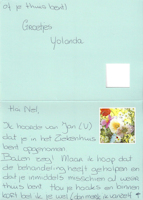 of je thuis bent!
Groetjes
Yolanda
Hoi Nel,
Ik hoorde van Jan (V)
dat je in het Ziekenhuis
bent opgenomen.
Balen zeg! Maar ik hoop dat
de behandeling heeft geholpen en
dat je inmiddels misschien al weer
thuis bent. Hou je haaks en